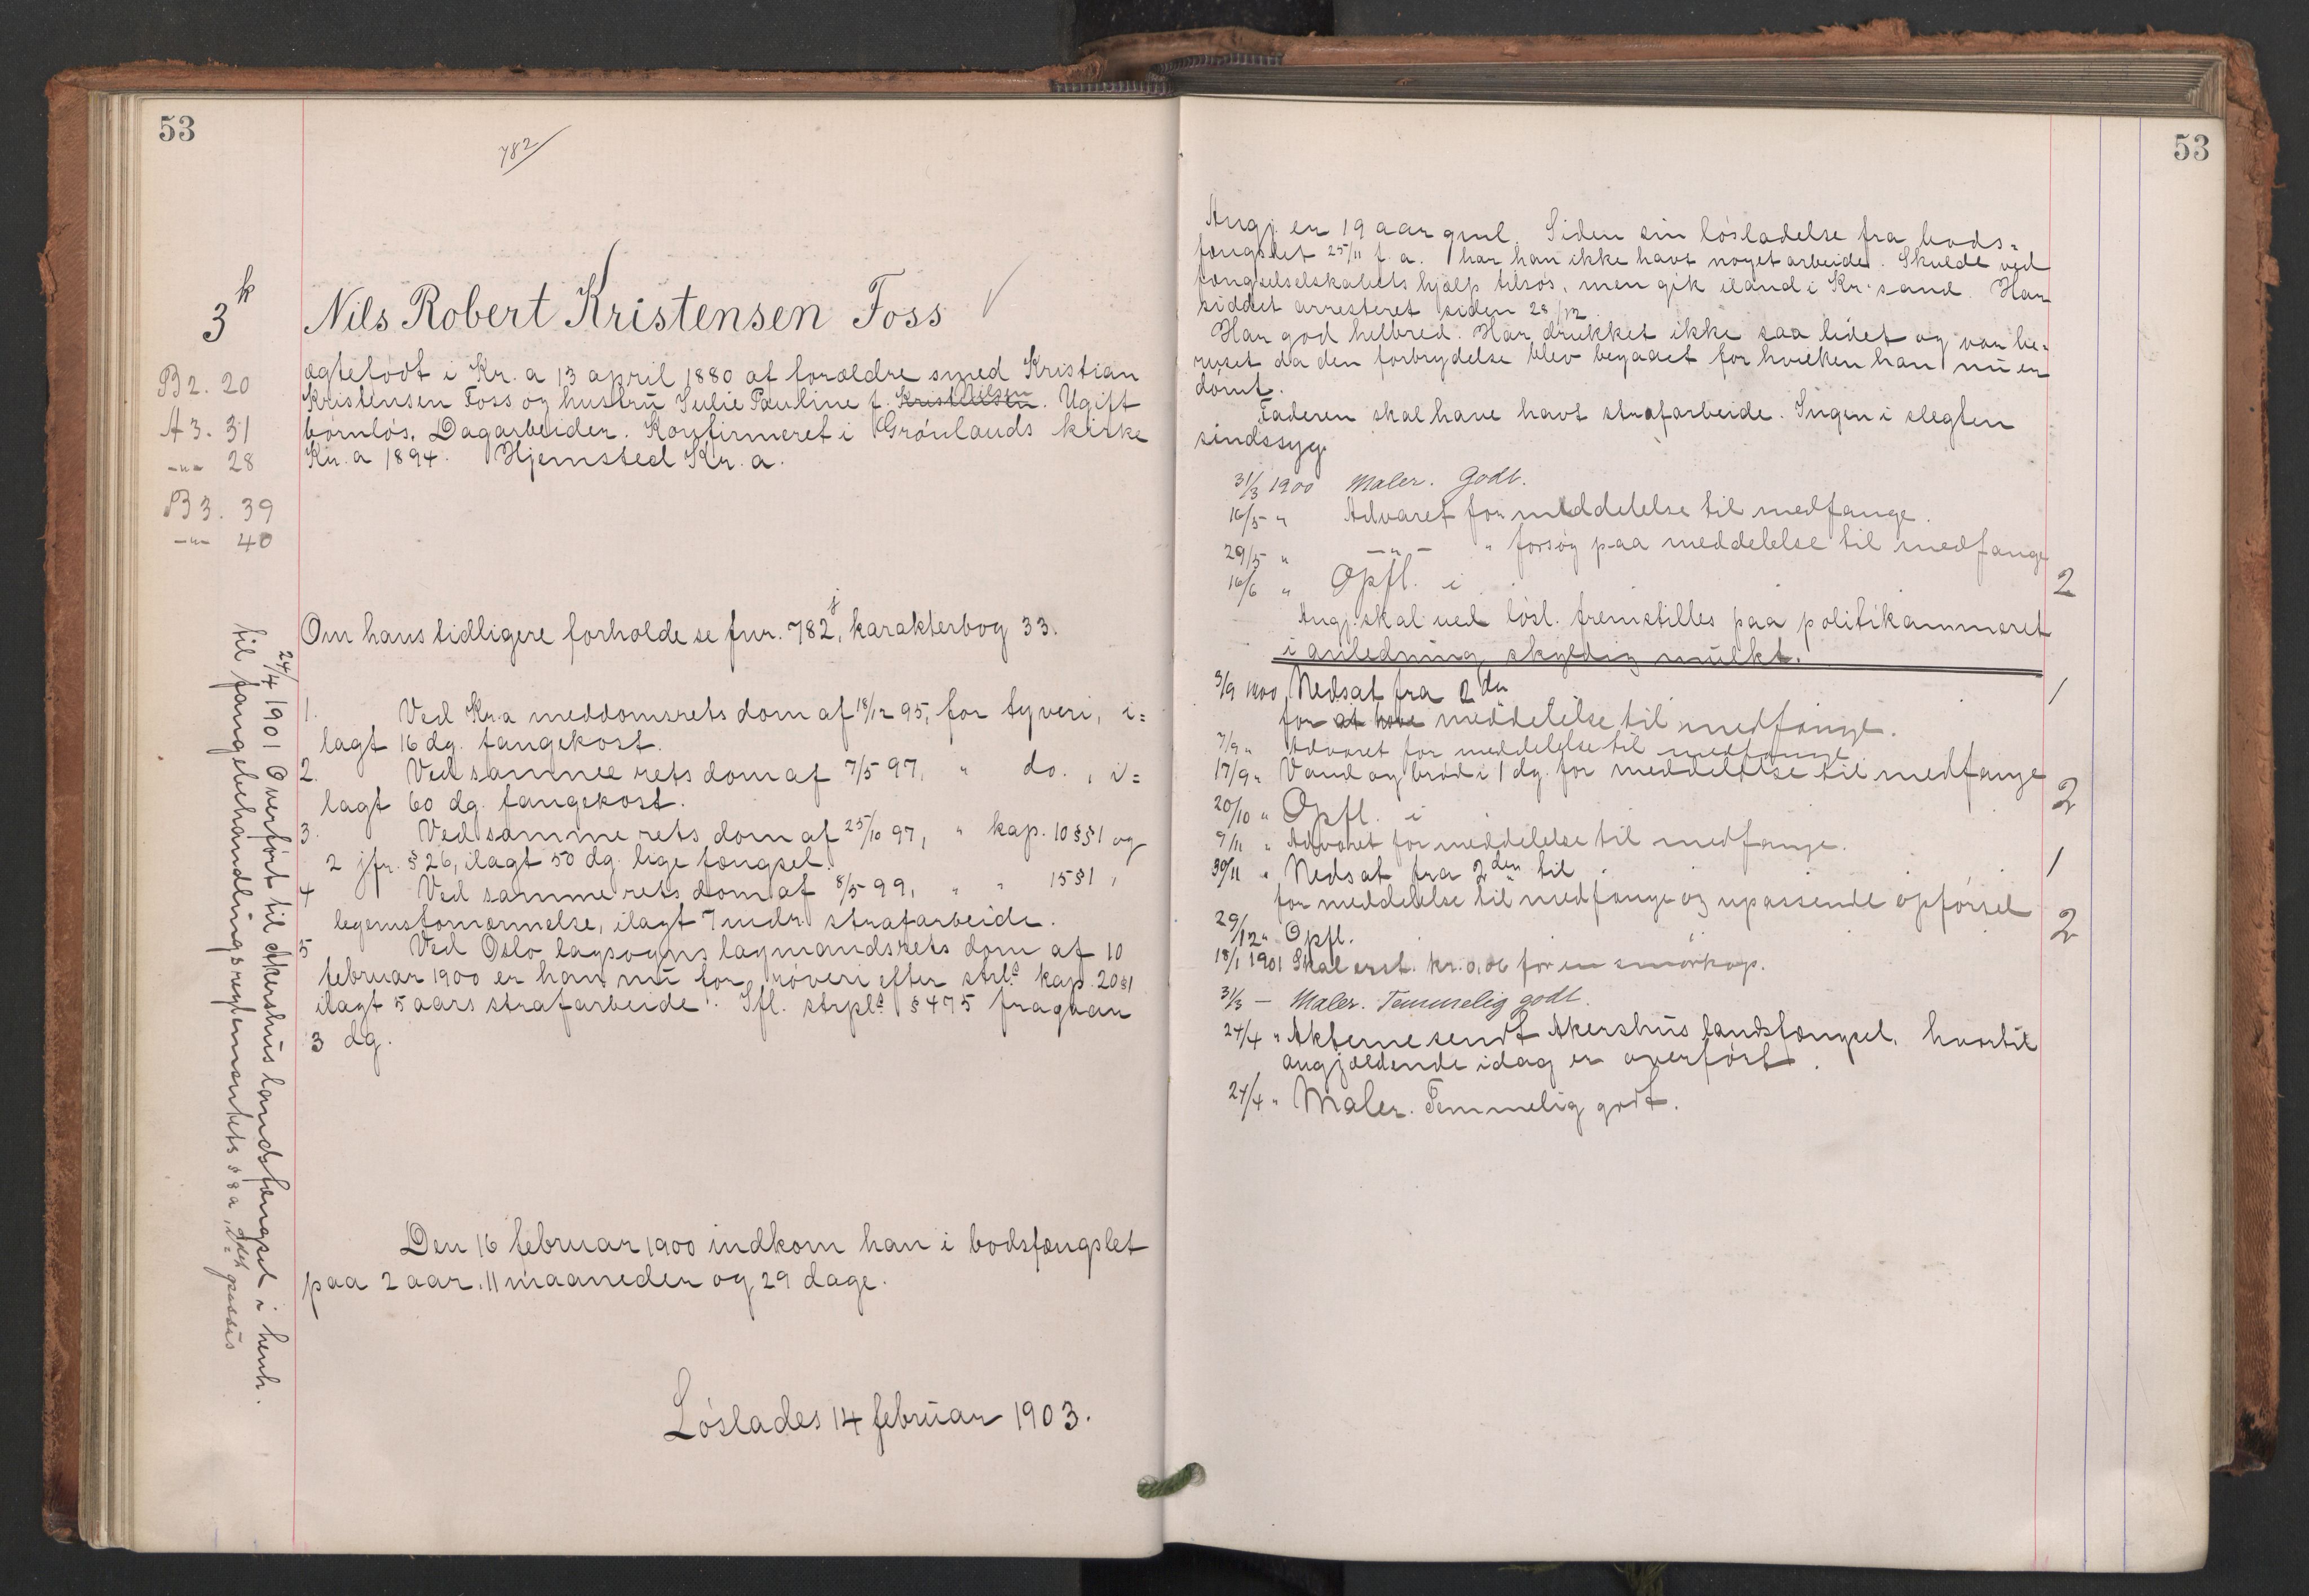 53
782
3k
B2. 20
A3. 31
-"- 28
B3. 39
-"- 40
Nils Robert Kristensen Foss
ægtefødt i Kr.a 13 april 1880 af forældre smed Kristian
Kristensen Foss og hustru Julie Pauline f. Nilsen. Ugift
børnløs. Dagarbeider. Konfirmeret i Grønlands kirke
Kr.a 1894. Hjemsted Kr.a.
Om hans tidligere forholde se fnr. 782j, karakterbog 33.
1. Ved Kr.a meddomsrets dom af 18/12 95, for tyveri, i=
lagt 16 dg. fangekost.
2. Ved samme rets dom af 7/5 97, " do., i=
lagt 60 dg. fangekost.
3. Ved samme rets dom af 25/10 97, " kap. 10 §§1 og
2 jfr. § 26, ilagt 50 dg. lige fængsel.
4 Ved samme rets dom af 8/5 99, " " 15 §1,
legemsfornærmelse, ilagt 7 mdr. strafarbeide.
5 Ved Oslo lagsogns lagmandsrets dom af 10
februar 1900 er han nu for røveri efter strls kap. 20 §1
ilagt 5 aars strafarbeide. Ifl. strpls § 475 fragaar
3 dg.
Den 16 februar 1900 indkom han i bodsfængslet
paa 2 aar, 11 maaneder og 29 dage.
Løslades 14 februar 1903.
24/4 1901 Overført til Akershus landsfængsel i henh.
til fangebehandlingsreglementets § 8 a,
53
Angj. er 19 aar gml. Siden sin løsladelse fra bods=
fængslet 25/11 f.a. har han ikke havt noget arbeide. Skulde ved
fængselselskabets hjælp tilsøs, men gik iland i Kr.sand. Har
siddet arresteret siden 28/12.
Har god helbred. Har drukket ikke saa lidet og var be=
ruset da den forbrydelse blev begaaet for hvilken han nu er
dømt.
Faderen skal have havt strafarbeide. Ingen i slegten
sindssyg.
31/3 1900 Maler. Godt.
16/5 " Advaret for meddelelse til medfange.
29/5 " -"- " forsøg paa meddelelse til medfange
16/6 " Opfl. i 2
Angj. skal ved løsl. fremstilles paa politikammeret
i anledning skyldig mulkt.
3/9 1900 Nedsat fra 2den 1
for at have meddelelse til medfange.
7/9 " Advaret for meddelelse til medfange.
17/9 " Vand og brød i 1 dg. for meddelelse til medfange
20/10 " Opfl. i 2
9/11 " Advaret for meddelelse til medfange.
30/11 " Nedsat fra 2den til 1
for meddelelse til medfange og upassende opførsel
29/12 " Opfl. 2
18/1 1901 Skal erst. kr. 0,06 for en smørkop.
31/3 - Maler. Temmelig godt.
24/4 " Akterne sendt Akershus landsfængsel, hvortil
angjældende idag er overført.
24/4 " Maler. Temmelig godt.